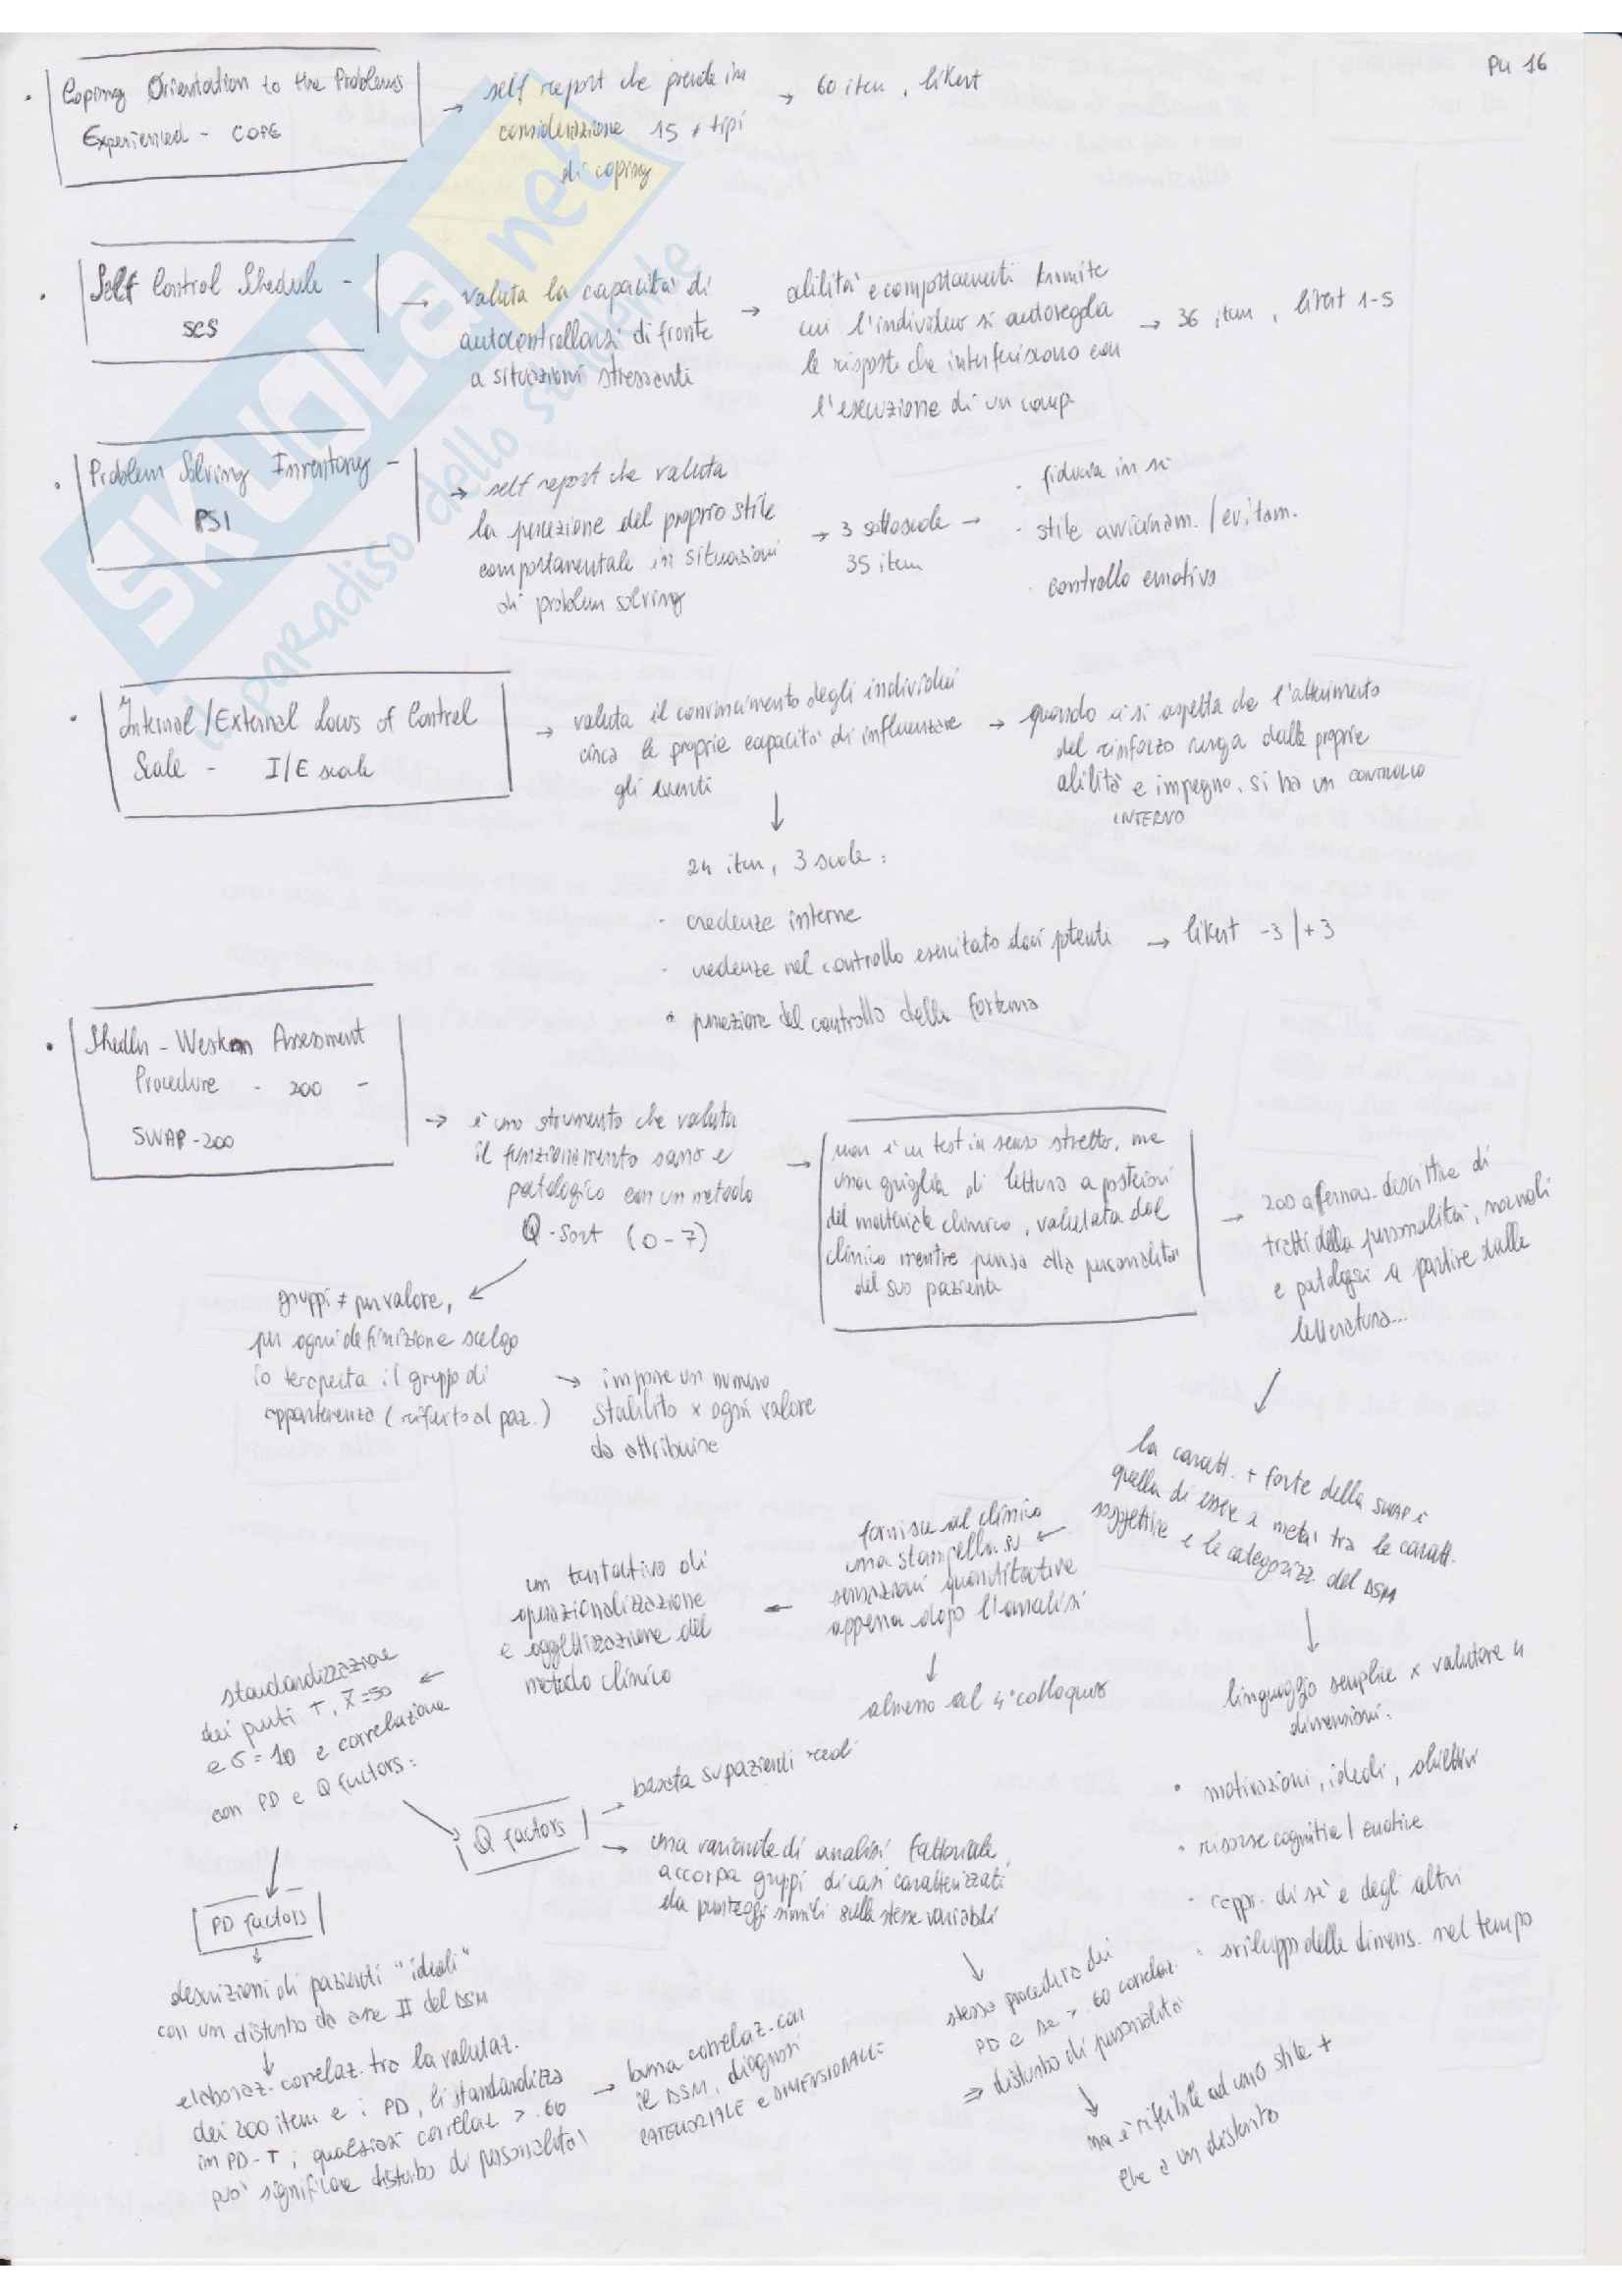 PU 16
Coping Orientation to the Problems
Experienced - COPE
→ self report che prende in
considerazione 15 ≠ tipi
di coping
→ 60 item, likert
Self Control Schedule -
SCS
→ valuta la capacità di
autocontrollarsi di fronte
a situazioni stressanti
→ abilità e comportamenti tramite
cui l'individuo si autoregola
le risposte che interferiscono con
l'esecuzione di un comp
→ 36 item, likert 1-5
Problem Solving Inventory -
PSI
→ self report che valuta
la percezione del proprio stile
comportamentale in situazioni
di problem solving
→ 3 sottoscale →
35 item
· fiducia in sé
· stile avvicinam. / evitam.
· controllo emotivo
Internal/External Locus of Control
Scale - I/E scale
→ valuta il convincimento degli individui
circa le proprie capacità di influenzare
gli eventi
→ quando ci si aspetta che l'ottenimento
del rinforzo venga dalle proprie
abilità e impegno, si ha un CONTROLLO
INTERNO
24 item, 3 scale:
· credenze interne
· credenze nel controllo esercitato dai potenti → likert -3 | +3
· percezione del controllo della fortuna
Shedler - Westen Assessment
Procedure - 200 -
SWAP-200
→ è uno strumento che valuta
il funzionamento sano e
patologico con un metodo
Q-Sort (0-7)
→ non è un test in senso stretto, ma
una griglia di lettura a posteriori
del materiale clinico, valutata dal
clinico mentre pensa alla personalità
del suo paziente
→ 200 affermaz. descrittive di
tratti della personalità, normali
e patologici a partire dalla
letteratura...
gruppi ≠ per valore,
per ogni definizione scelgo
io terapeuta il gruppo di
appartenenza (riferito al paz.)
→ impone un numero
stabilito x ogni valore
da attribuire
la caratt. + forte della SWAP è
quella di essere a metà tra le caratt.
soggettive e le categorizz. del DSM
fornisce al clinico
una stampella su
sensazioni quantitative
appena dopo l'analisi
almeno al 4° colloquio
un tentativo di
operazionalizzazione
e oggettivazione del
metodo clinico
standardizzazione
dei punti T, x̄=50
e σ=10 e correlazione
con PD e Q factors:
linguaggio semplice x valutare 4
dimensioni:
· motivazioni, ideali, obiettivi
· risorse cognitive / emotive
· rappr. di sé e degli altri
· sviluppo delle dimens. nel tempo
Q factors
→ basata su pazienti reali
→ una variante di analisi fattoriale
accorpa gruppi di casi caratterizzati
da punteggi simili sulle stesse variabili
stessa procedura dei
PD e se > .60 correlaz.
⇒ disturbo di personalità
ma è riferibile ad uno stile +
che a un disturbo
PD factors
descrizioni di pazienti "ideali"
con un disturbo da asse II del DSM
elaboraz. correlaz. tra la valutaz.
dei 200 item e i PD, li standardizza
in PD-T; qualsiasi correlaz > .60
può significare disturbo di personalità
→ buona correlaz. con
il DSM, diagnosi
CATEGORIALE e DIMENSIONALE
SKUOLA.net
il paradiso dello studente